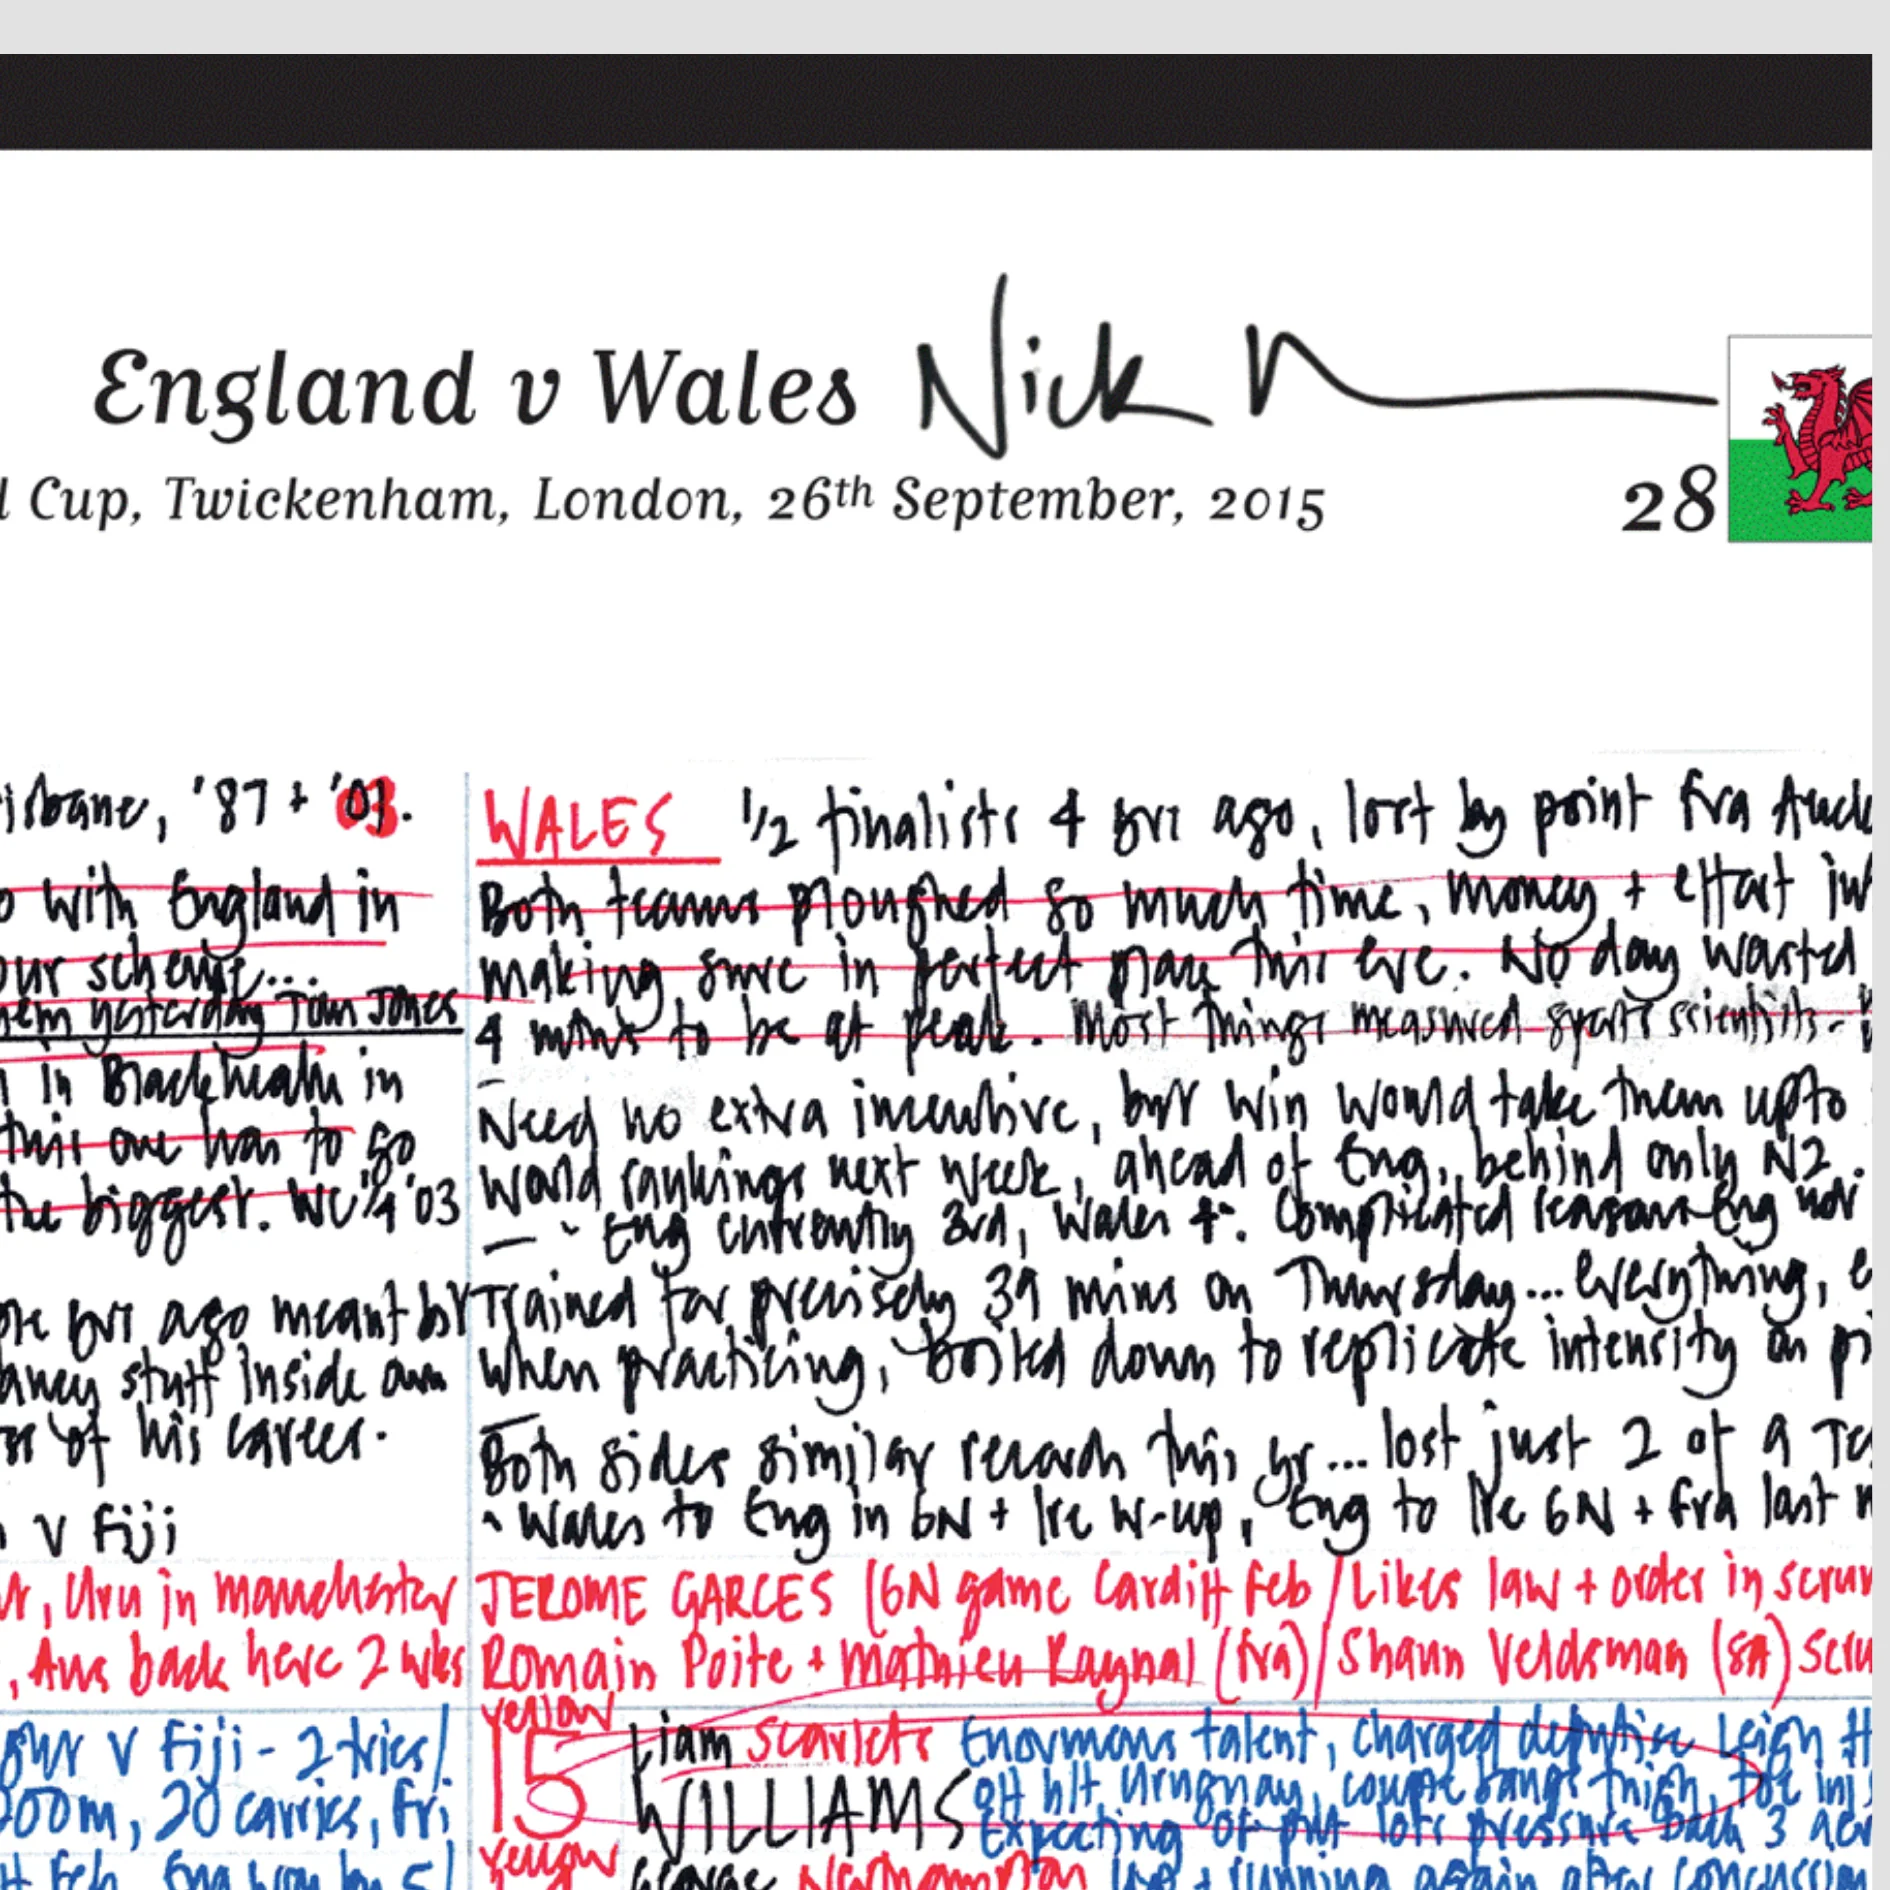 England v Wales Nick
Cup, Twickenham, London, 26th September, 2015
28
isbane, '87 + '03.
with England in
our scheme...
them yesterday Tom Jones
in Blackheath in
this one has to go
the biggest. WC 1/4 '03
yrs ago meant bit
fancy stuff inside own
of his career.
v Fiji
, Uru in Manchester
, Aus back here 2 wks
v Fiji - 2 tries/
200m, 20 carries, Fri
Feb, Eng won by 5/
WALES 1/2 finalists 4 yrs ago, lost by point Fra Auck
Both teams ploughed so much time, money + effort in
making sure in perfect place this eve. No day wasted
4 mins to be at peak. Most things measured sports scientists -
Need no extra incentive, but win would take them upto
world rankings next week, ahead of Eng, behind only NZ.
- Eng currently 3rd, Wales 4. Complicated reasons Eng not
Trained for precisely 39 mins on Thursday... everything,
when practicing, boiled down to replicate intensity on
Both sides similar records this yr... lost just 2 of 9
- Wales to Eng in 6N + Ire w-up, Eng to Ire 6N + Fra last
JEROME GARCES (6N game Cardiff Feb / Likes law + order in scrum
Romain Poite + Mathieu Raynal (Fra) / Shaun Veldsman (SA)
yellow
15 Liam Scarlets Enormous talent, charged deputise Leigh
WILLIAMS off h/t Uruguay, couple bangs thigh, toe inj
Expecting Of put lots pressure back 3
yellow
George Northampton up + running again after concussion